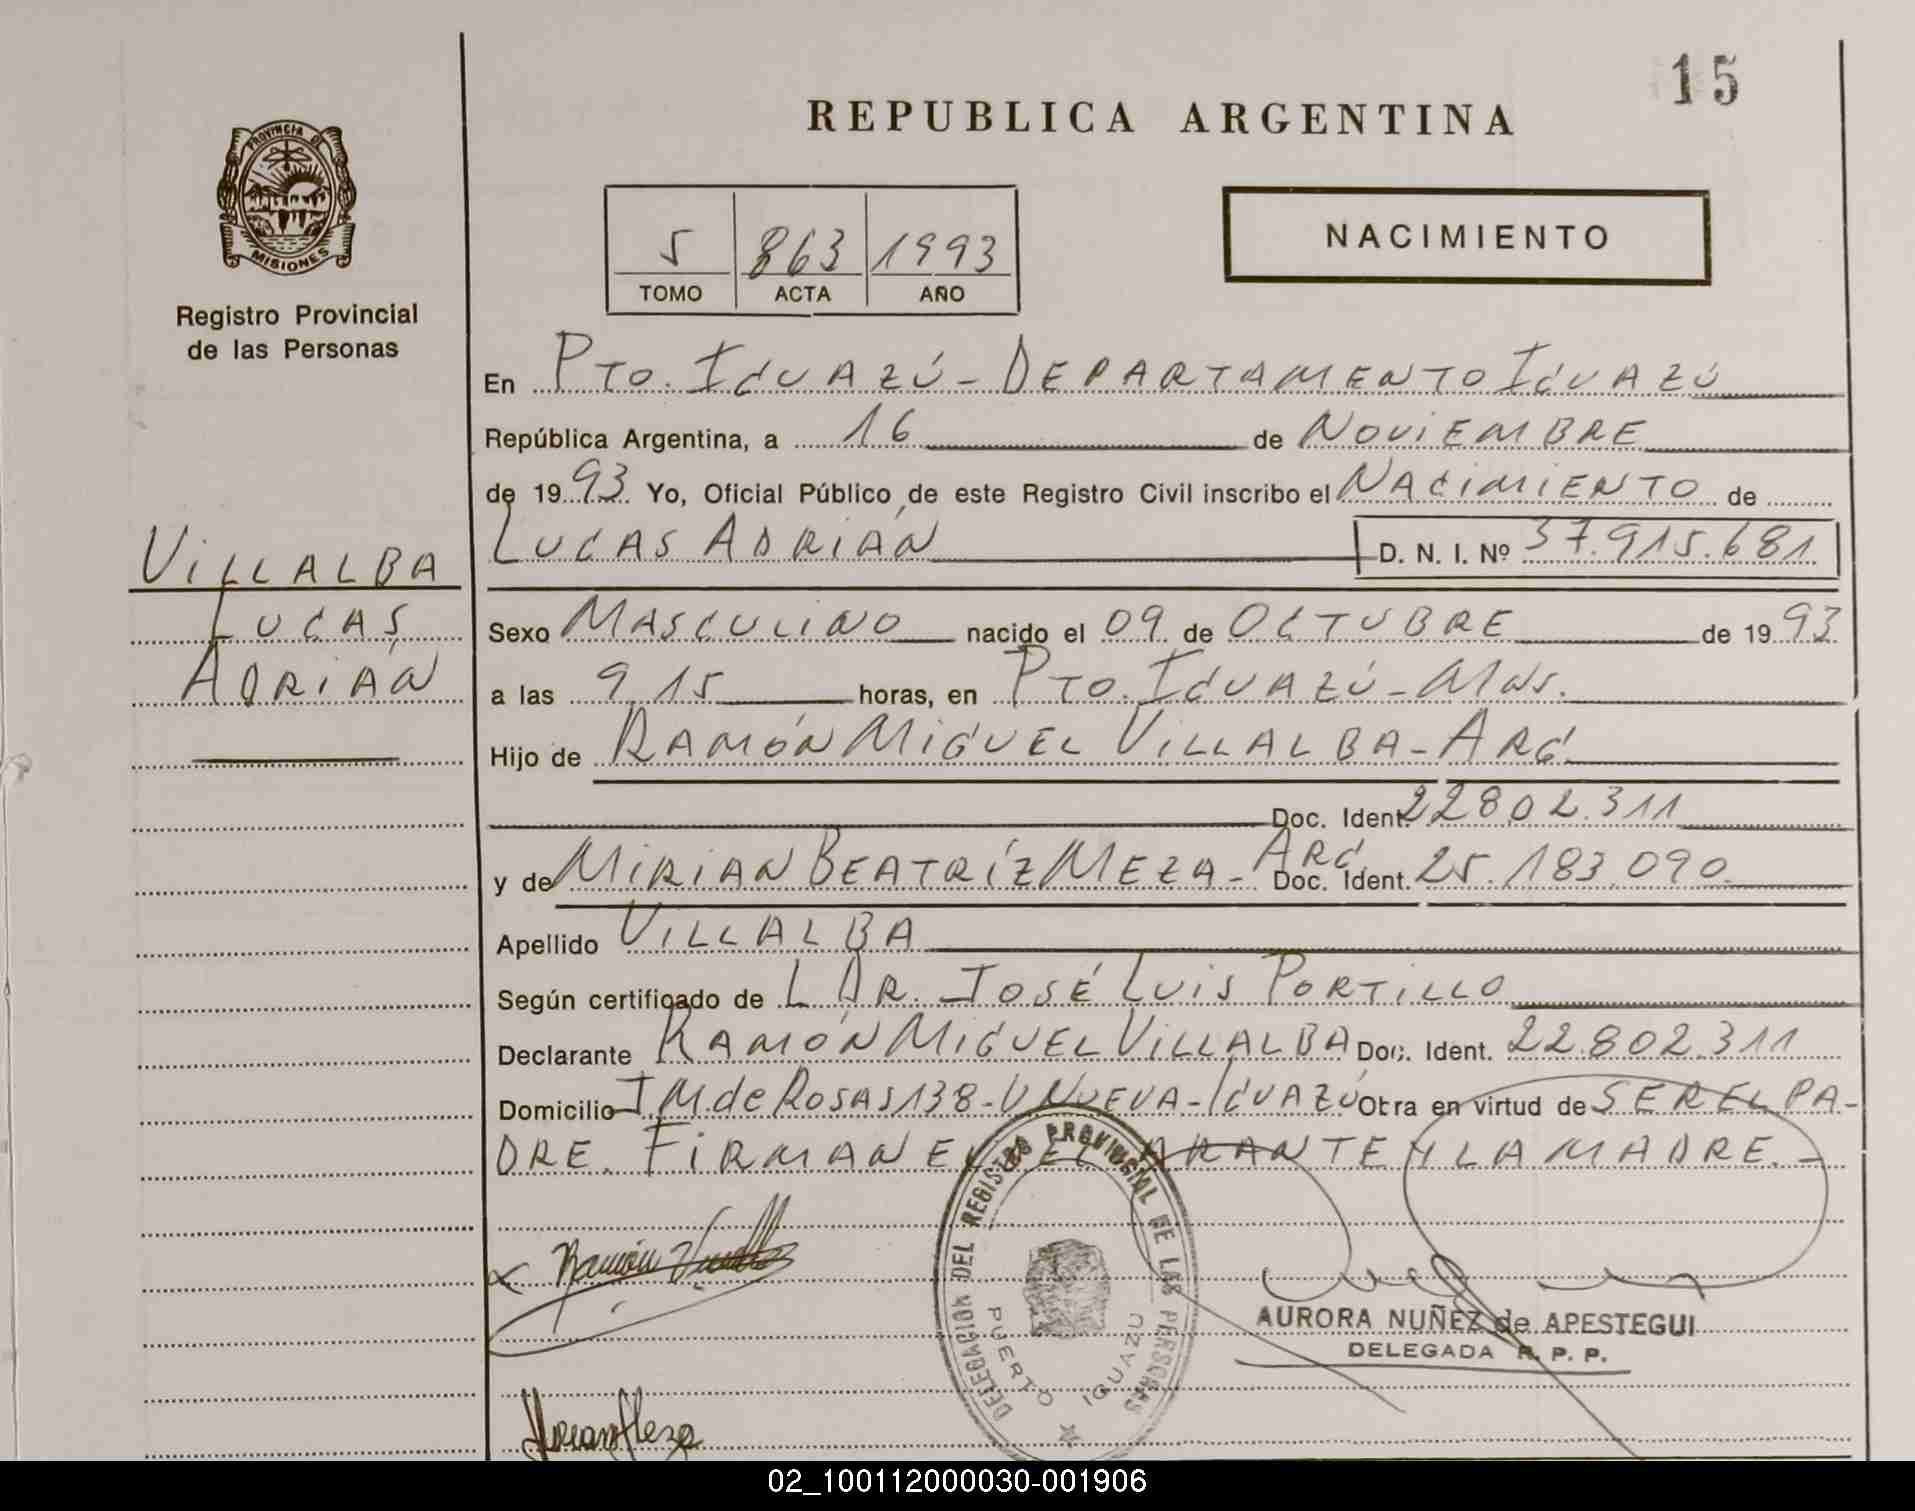 15
REPUBLICA ARGENTINA
PROVINCIA DE
MISIONES
Registro Provincial
de las Personas
5 863 1993
TOMO ACTA AÑO
NACIMIENTO
En PTO. IGUAZÚ - DEPARTAMENTO IGUAZÚ
República Argentina, a 16 de NOVIEMBRE
de 1993. Yo, Oficial Público de este Registro Civil inscribo el NACIMIENTO de
VILLALBA
LUCAS
ADRIÁN
LUCAS ADRIÁN D. N. I. Nº 37.915.681
Sexo MASCULINO nacido el 09 de OCTUBRE de 1993
a las 9 15 horas, en PTO. IGUAZÚ - MNS.
Hijo de RAMÓN MIGUEL VILLALBA - ARG.
Doc. Ident. 22802.311
y de MIRIAN BEATRÍZ MEZA - ARG Doc. Ident. 25.183.090
Apellido VILLALBA
Según certificado de L DR. JOSÉ LUIS PORTILLO
Declarante RAMÓN MIGUEL VILLALBA Doc. Ident. 22.802.311
Domicilio J.M. de ROSAS 138 - V NUEVA - IGUAZÚ Otra en virtud de SER EL PA-
DRE. FIRMAN EL ARANTE Y LA MADRE. -
Ramón Villalba
DELEGACION DEL REGISTRO PROVINCIAL DE LAS PERSONAS
PUERTO IGUAZU
AURORA NUÑEZ de APESTEGUI
DELEGADA R. P. P.
Mirian Meza
02_100112000030-001906